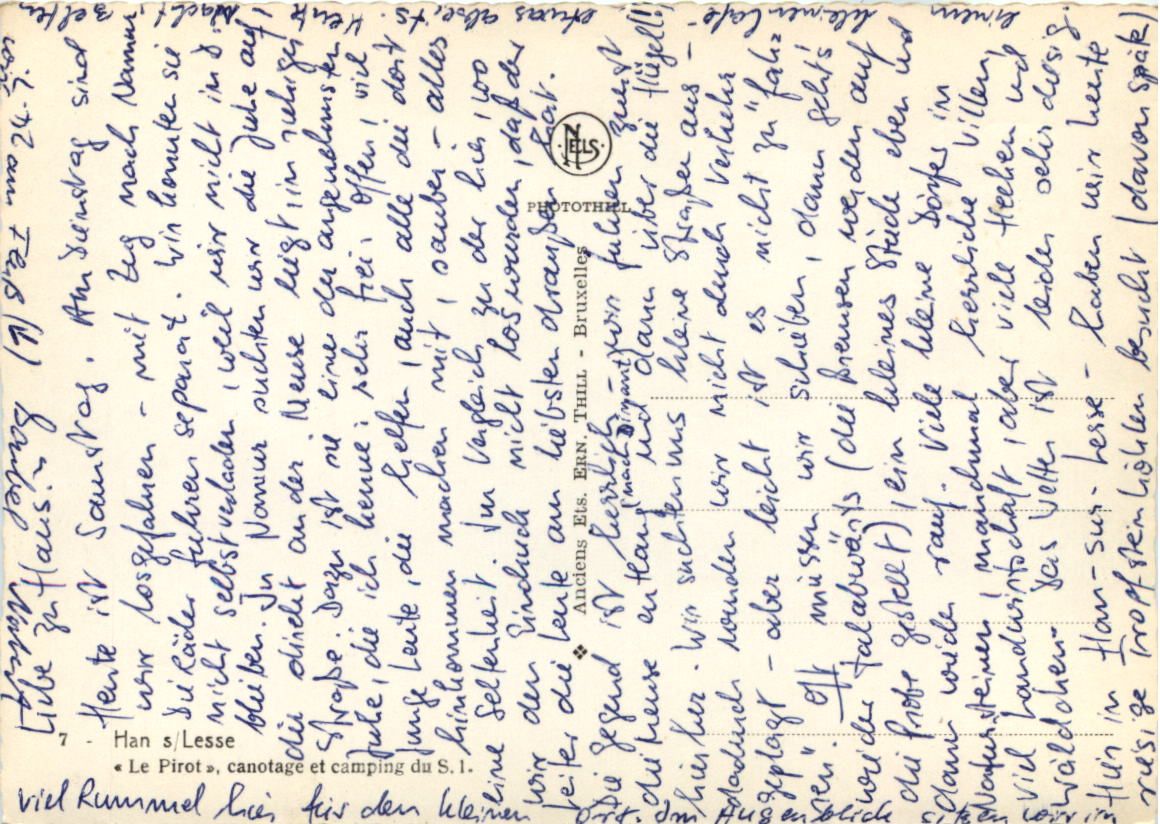 Liebe zu Haus!
Heute ist Samstag. Am Dienstag sind
wir losgefahren - mit Zug nach Namur
Die Räder fuhren separat. Wir konnten sie
nicht selbst verladen, weil wir nicht in d.
bleiben. In Namur suchten wir die Juhe auf,
die direkt an der Meuse liegt in ruhiger
Straße. Dazu ist sie eine der angenehmsten
Juhe, die ich kenne: sehr frei, offen, viel
junge Leute, die helfen, auch alle die dort
hinkommen machen mit, sauber - alles
eine Seltenheit. Im Vergleich zu der hier, wo
wir den Eindruck nicht loswurden, daß der
Leiter die Leute am liebsten draußen hat.
Die Gegend ist herrlich - wir fuhren zuerst
die Meuse entlang (nach Dinant) und dann über die Hügel!!
hierher. Wir suchten uns kleine Straßen aus -
dadurch wurden wir nicht durch Verkehr
geplagt - aber leicht ist es nicht zu "fah-
ren". Oft müssen wir schieben, dann geht's
wieder talabwärts (die Bremsen werden auf
die Probe gestellt), ein kleines Stück eben und
dann wieder rauf. Viele kleine Dörfer in
Natursteinen, manchmal herrliche Villen,
viel Landwirtschaft, aber viele Hecken und
Wäldchen. Das Wetter ist leider sehr diesig.
Hier in Han-sur-Lesse - haben wir heute
riesige Tropfsteinhöhlen besucht (davon spät)
viel Rummel hier für den kleinen Ort. Im Augenblick sitzen wir in
einem kleinen Café etwas abseits. Heute Nacht zelten
wir.
7 - Han s/Lesse
« Le Pirot », canotage et camping du S. I.
NELS
PHOTOTHILL
Anciens Ets. ERN. THILL - Bruxelles